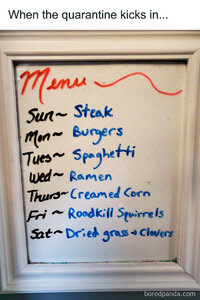 When the quarantine kicks in...
Menu
Sun~ Steak
Mon~ Burgers
Tues~ Spaghetti
Wed~ Ramen
Thurs~ Creamed Corn
Fri ~ Roadkill Squirrels
Sat~ Dried grass + Clovers
boredpanda.com